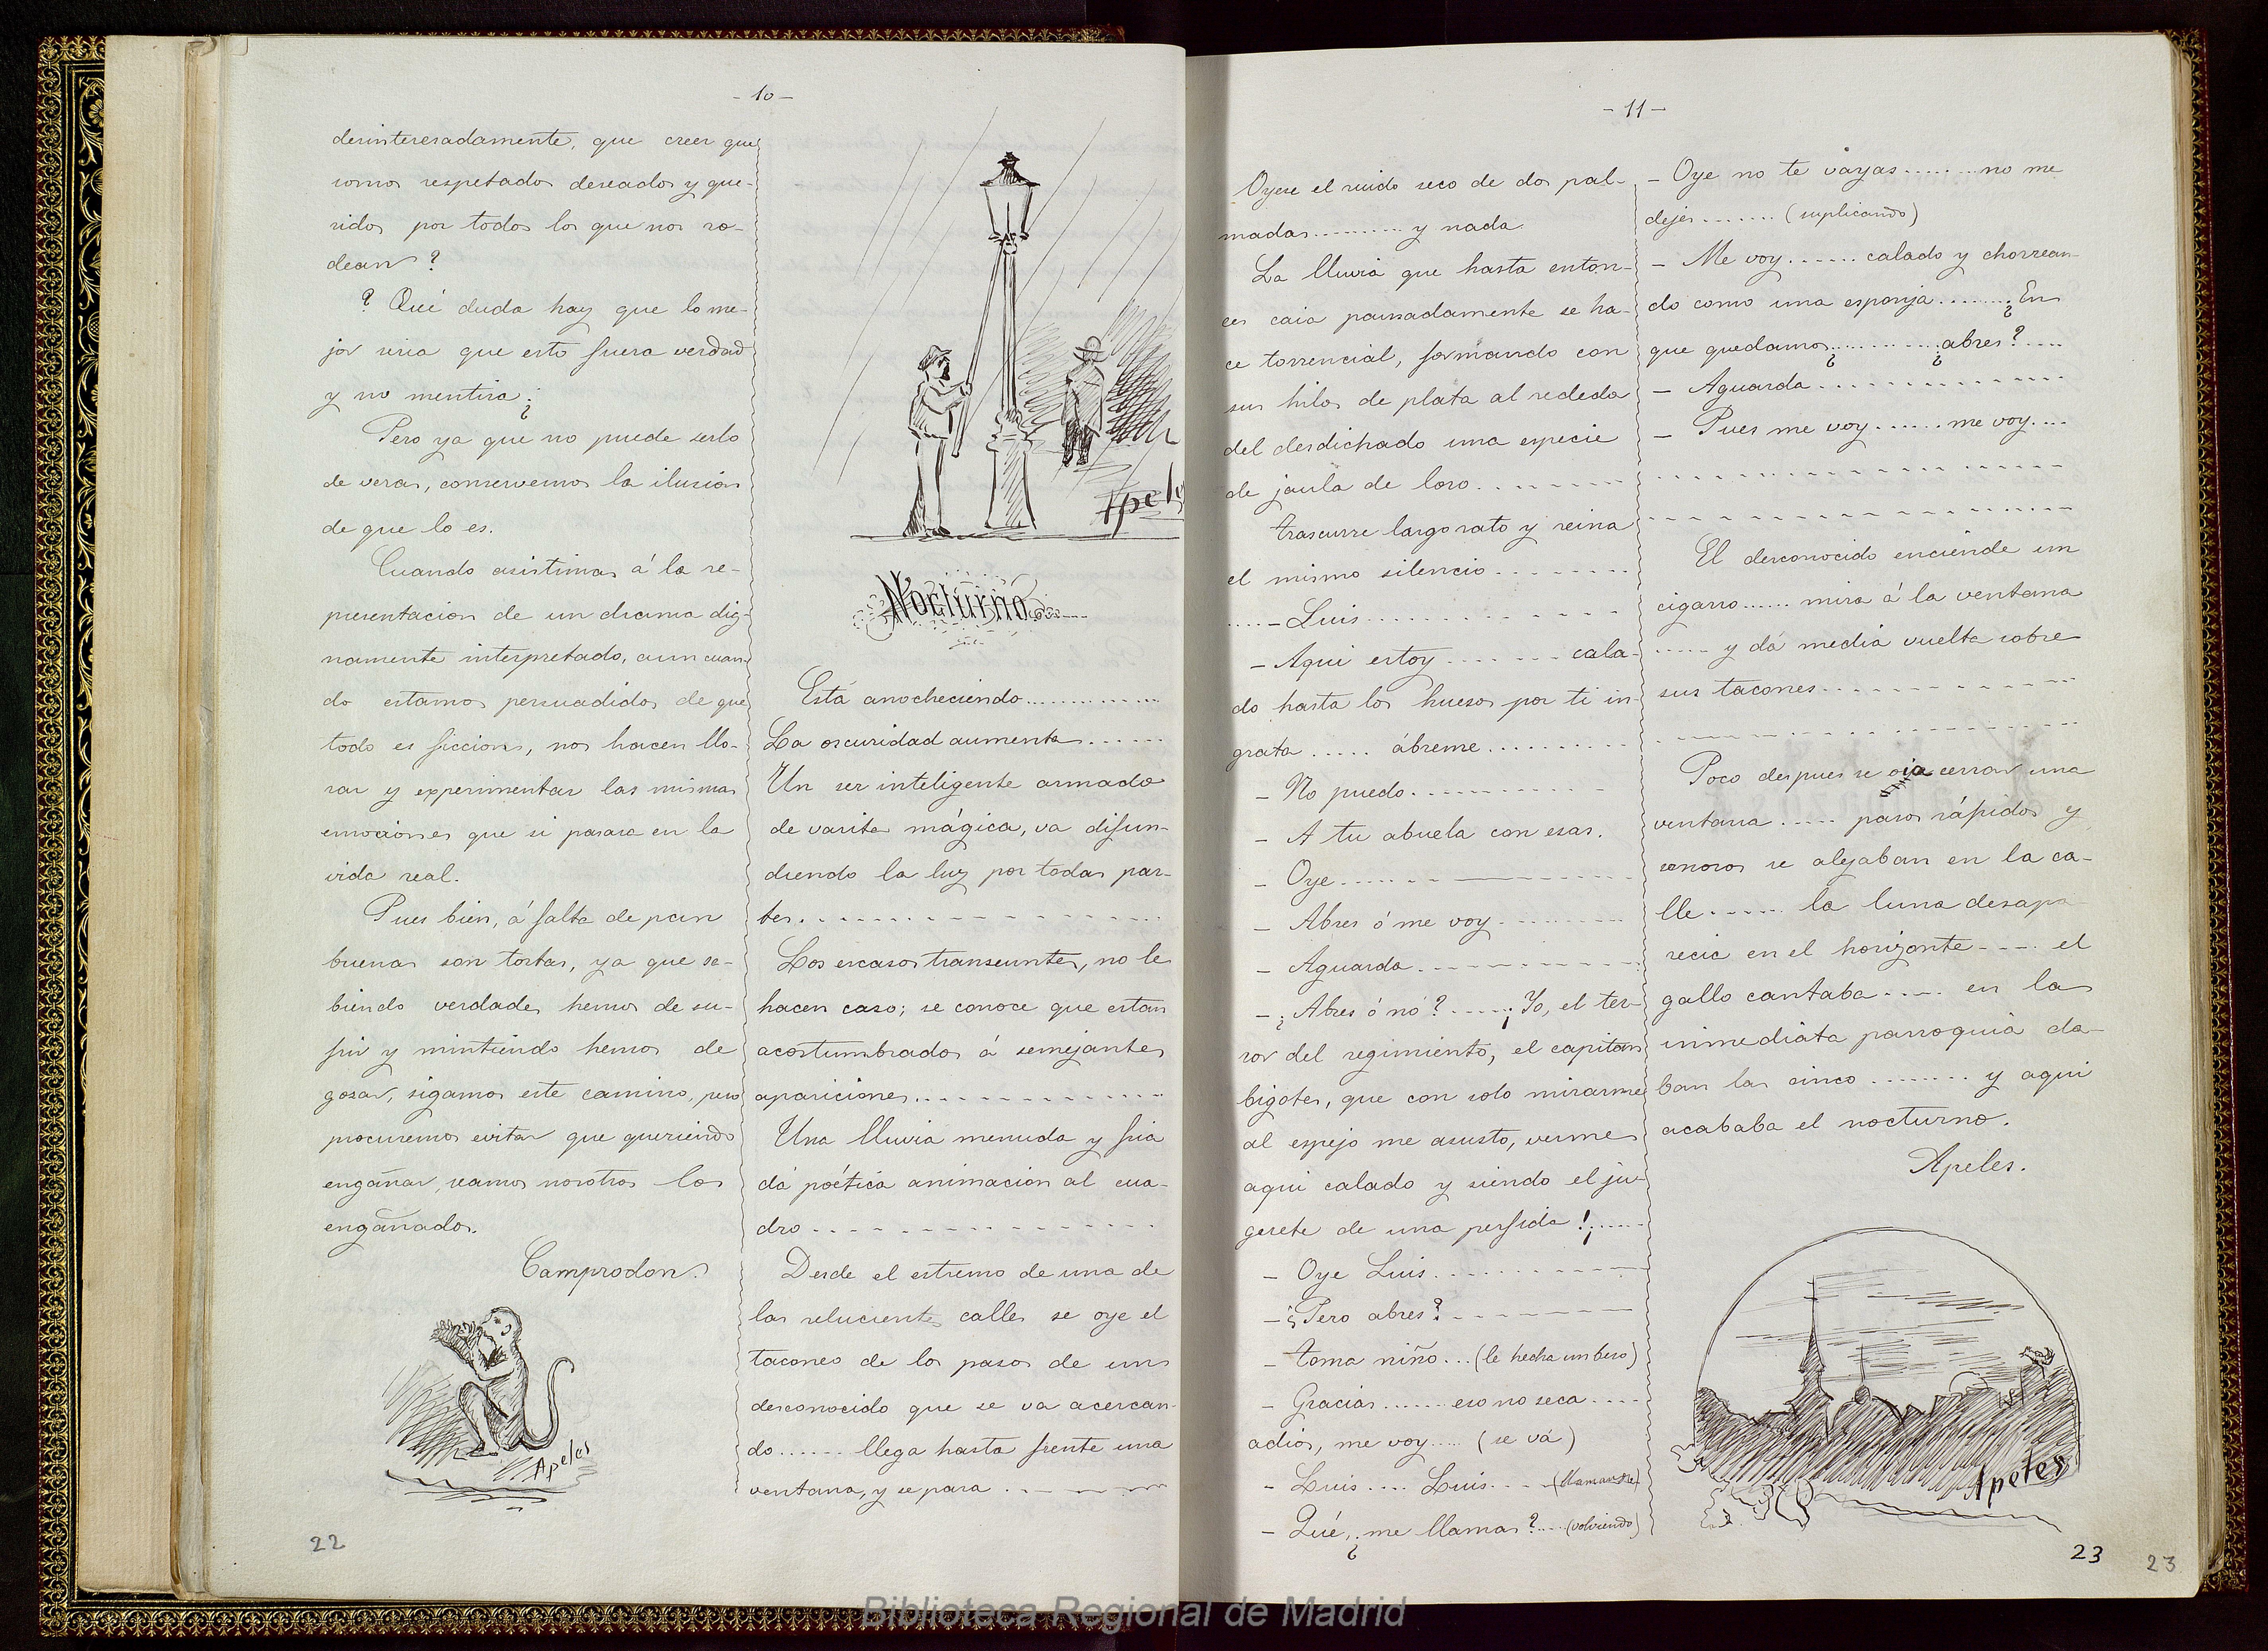 - 10 -
desinteresadamente, que creer que
somos respetados deseados y que-
ridos por todos los que nos ro-
dean?
? Qué duda hay que lo me-
jor seria que esto fuera verdad
y no mentira¿
Pero ya que no puede serlo
de veras, conservemos la ilusion
de que lo es.
Cuando asistimos á la re-
presentacion de un drama dig-
namente interpretado, aun cuan-
do estamos persuadidos de que
todo es ficcion, nos hacen llo-
rar y experimentar las mismas
emociones que si pasara en la
vida real.
Pues bien, á falta de pan
buenas son tortas, ya que sa-
biendo verdades hemos de su-
frir y mintiendo hemos de
gosar, sigamos este camino, pero
procuremos evitar que queriendo
engañar, seamos nosotros los
engañados.
Camprodon.
Apeles
22
Apeles
Nocturno
Está anocheciendo..............
La oscuridad aumenta.......
Un ser inteligente armado
de varita mágica, va difun-
diendo la luz por todas par-
tes. - - - - - - - - - - - - - -
Los escasos transeuntes, no le
hacen caso; se conoce que estan
acostumbrados á semejantes
apariciones. - - - - - - - - - - -
Una lluvia menuda y fria
dá poética animacion al cua-
dro - - - - - - - - - - - - - -
Desde el estremo de una de
las relucientes calles se oye el
taconeo de los pasos de un
desconocido que se va acercan-
do ...... llega hasta frente una
ventana, y se para . - - - - - -
- 11 -
Oyese el ruido seco de dos pal-
madas.......... y nada.
La lluvia que hasta enton-
ces caia pausadamente se ha-
ce torrencial, formando con
sus hilos de plata al rededor
del desdichado una especie
de jaula de loro. . . . . . . .
Trascurre largo rato y reina
el mismo silencio. . . . . . . .
.... - Luis. . . . . . . . . . . .
- Aqui estoy ....... cala-
do hasta los huesos por ti in-
grata ..... ábreme..........
- No puedo. - - - - - - - - -
- A tu abuela con esas.
- Oye. . . . . . - - - - - - - -
- Abres ó me voy . . . . . . . .
- Aguarda. - - - - - - - - - -
- ¿Abres ó nó? ..... ¡Yo, el ter-
ror del regimiento, el capitan
bigotes, que con solo mirarme
al espejo me asusto, verme
aqui calado y siendo el ju-
gerete de una perfida!¡......
- Oye Luis. . . . . . . . . . .
- ¿Pero abres? - - - - - - - -
- Toma niño... (le hecha un beso)
- Gracias....... eso no seca ....
adios, me voy..... (se vá)
- Luis .... Luis. ... - (llamandole)
- Qué, ¿me llamas? .... (volviendo)
- Oye no te vayas........ no me
dejes ....... (suplicando)
- Me voy...... calado y chorrean-
do como una esponja........ ¿En
que quedamos¿........... ¿abres? ....
- Aguarda. . . . . . . . . . . . .
- Pues me voy....... me voy....
- - - - - - - - - - - - - - - - -
- - - - - - - - - - - - - - - - -
El desconocido enciende un
cigarro ...... mira á la ventana
..... y dá media vuelta sobre
sus tacones. - - - - - - - - - -
- - - - - - - - - - - - - - - - -
Poco despues se oia cerrar una
ventana ..... pasos rápidos y
sonoros se alejaban en la ca-
lle ..... la luna desapa-
recie en el horizonte ---- el
gallo cantaba .... en la
inmediata parroquia da-
ban las cinco ........ y aqui
acababa el nocturno.
Apeles.
Apeles
23
23
Biblioteca Regional de Madrid